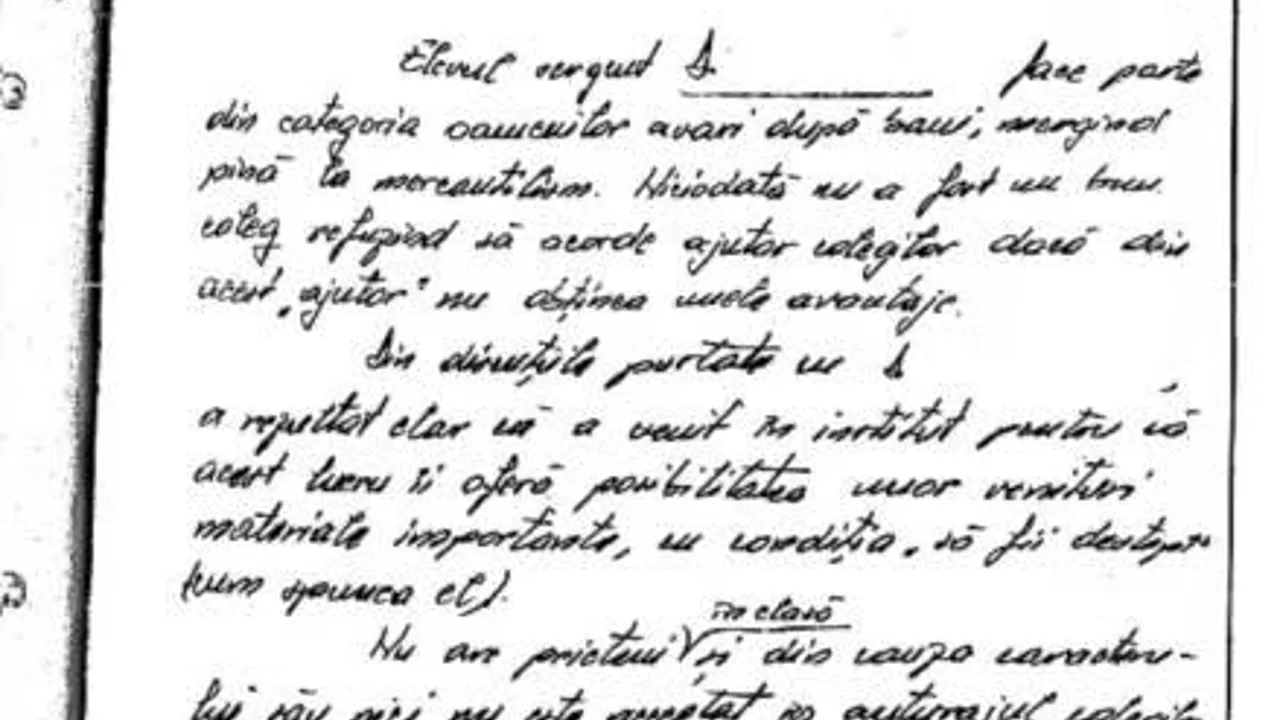 Elevul sergent D. face parte
din categoria oamenilor avari după bani, mergînd
pînă la mercantilism. Niciodată nu a fost un bun
coleg refuzînd să acorde ajutor colegilor dacă din
acest „ajutor" nu obținea unele avantaje.
Din discuțiile purtate cu D
a rezultat clar că a venit în institut pentru că
acest lucru îi oferă posibilitatea unor venituri
materiale importante, cu condiția „să fii deștept"
(cum spunea el).
în clasă
Nu are prieteni și din cauza caracteru-
lui său nici nu este acceptat în anturajul